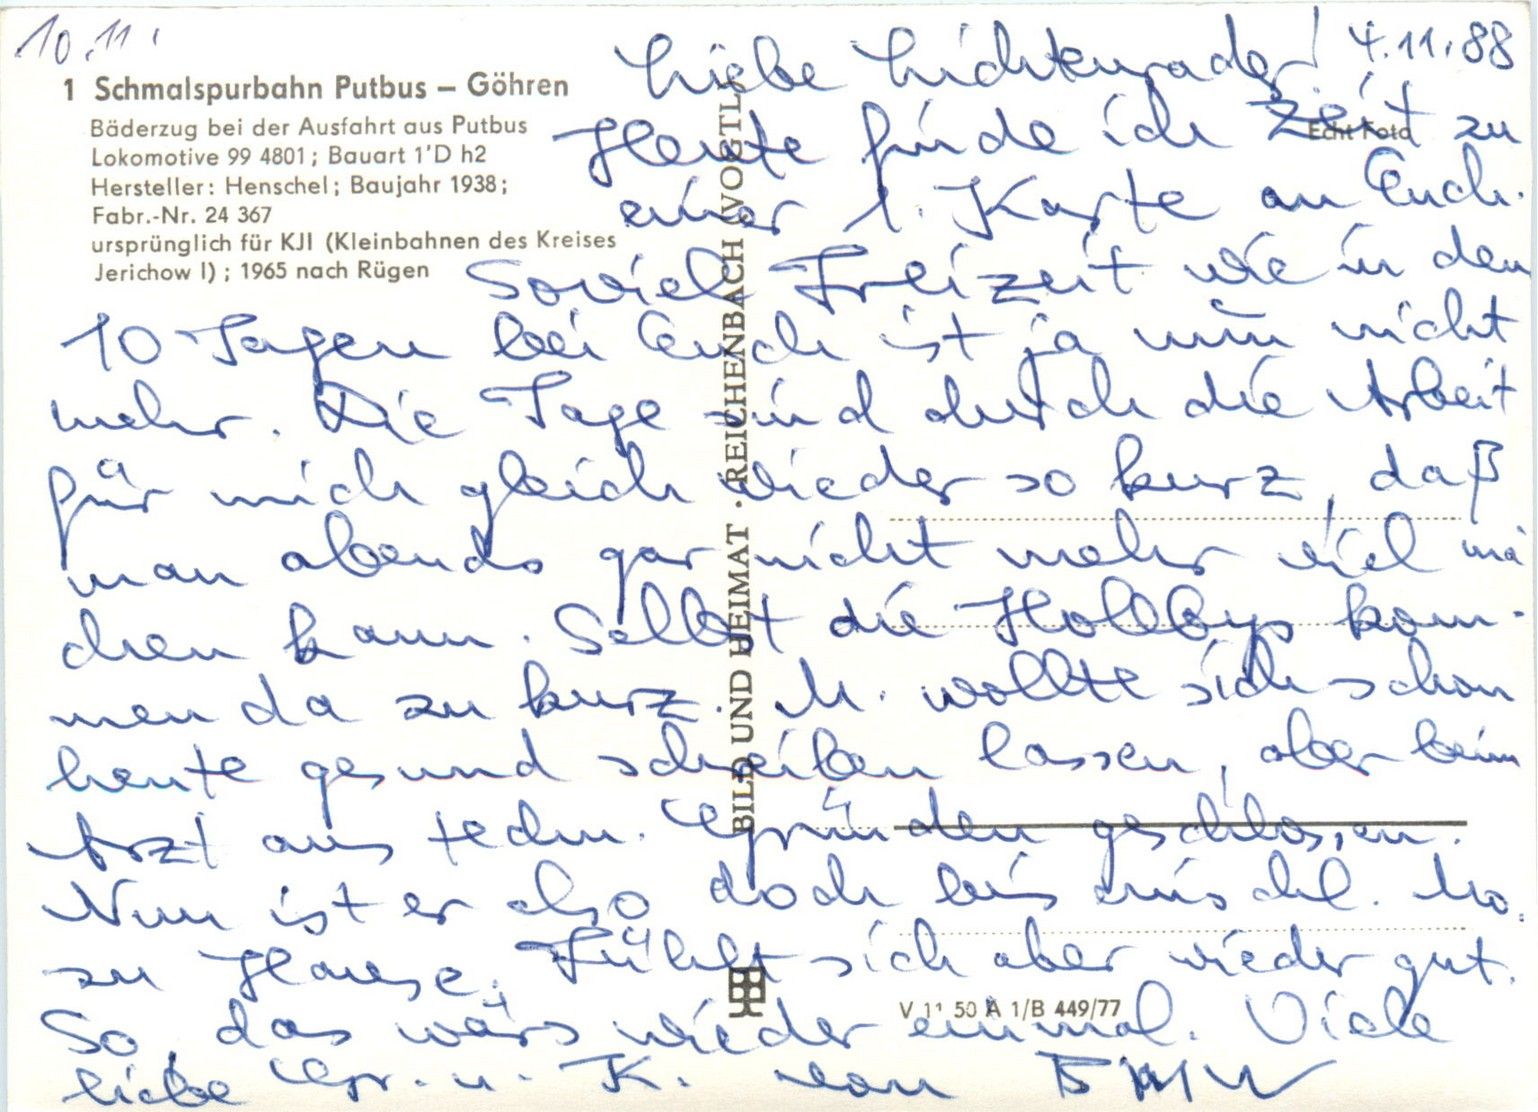 10.11.
4.11.88
1 Schmalspurbahn Putbus – Göhren
Bäderzug bei der Ausfahrt aus Putbus
Lokomotive 99 4801; Bauart 1'D h2
Hersteller: Henschel; Baujahr 1938;
Fabr.-Nr. 24 367
ursprünglich für KJI (Kleinbahnen des Kreises
Jerichow I); 1965 nach Rügen
Echt Foto
BILD UND HEIMAT · REICHENBACH (VOGTL
V 11 50 A 1/B 449/77
Liebe Lichtenrader!
Heute finde ich Zeit zu
einer 1. Karte an Euch.
Soviel Freizeit wie in den
10 Tagen bei Euch ist ja nun nicht
mehr. Die Tage sind durch die Arbeit
für mich gleich wieder so kurz, daß
man abends gar nicht mehr viel ma
chen kann. Selbst die Hobbys kom-
men da zu kurz. M. wollte sich schon
heute gesund schreiben lassen, aber beim
Arzt aus techn. Gründen geschlossen.
Nun ist er also doch bis einschl. Mo.
zu Hause. Fühlt sich aber wieder gut.
So, das wärs wieder einmal. Viele
liebe Gr. u. K. von